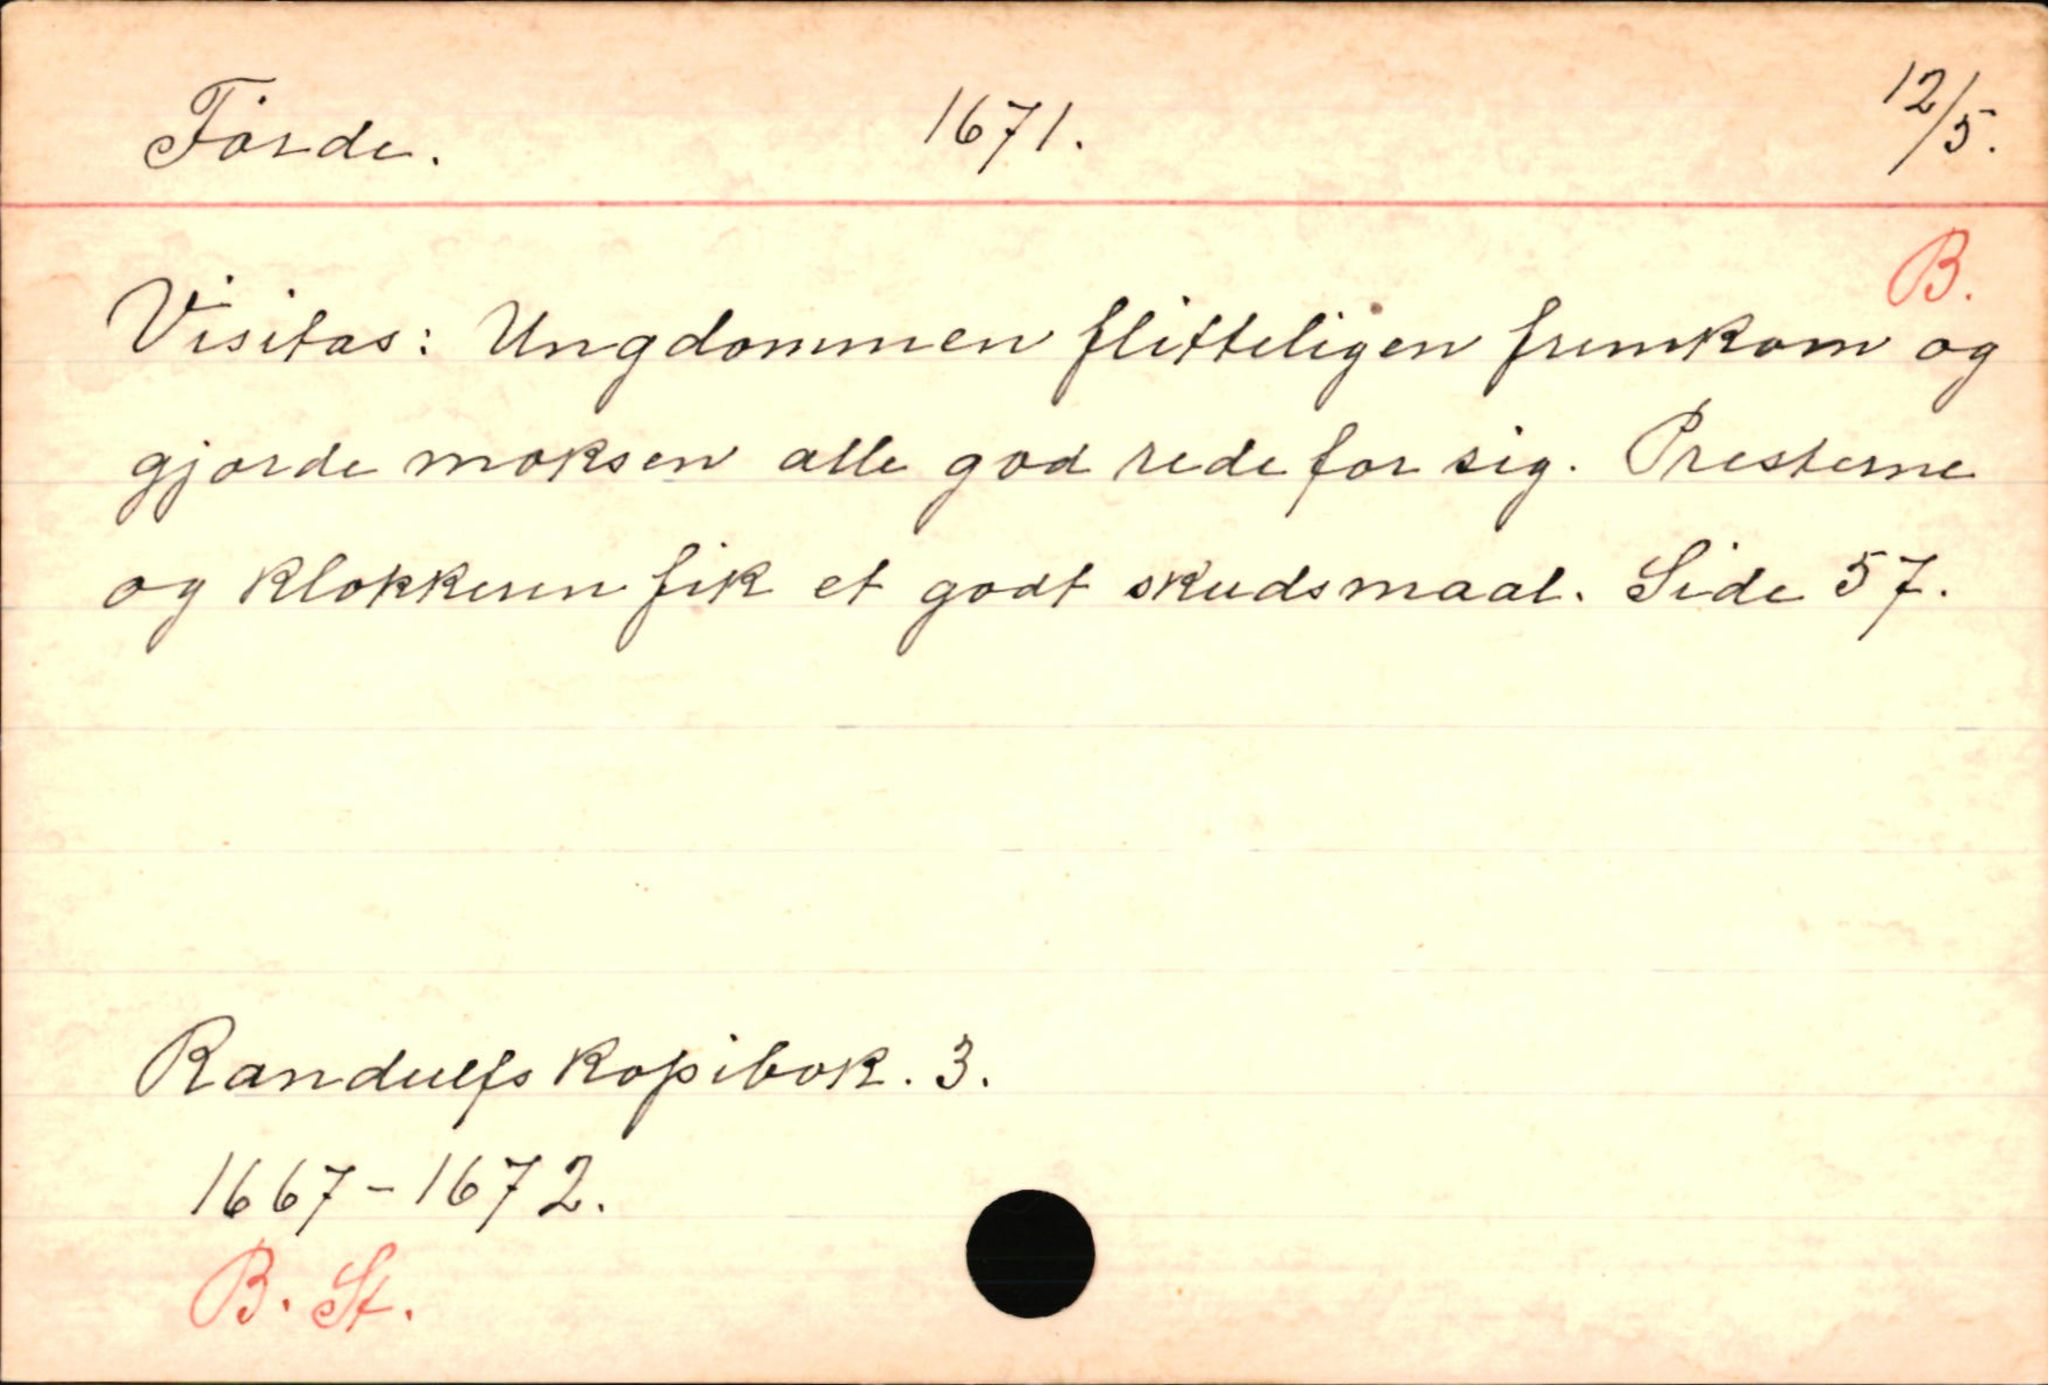 Førde. 1671. 12/5.
B.
Visitas: Ungdommen flitteligen fremkom og
gjorde moksen alle god rede for sig. Presterne
og klokkeren fik et godt skudsmaal. Side 57.
Randulfs kopibok. 3.
1667-1672.
B. St.